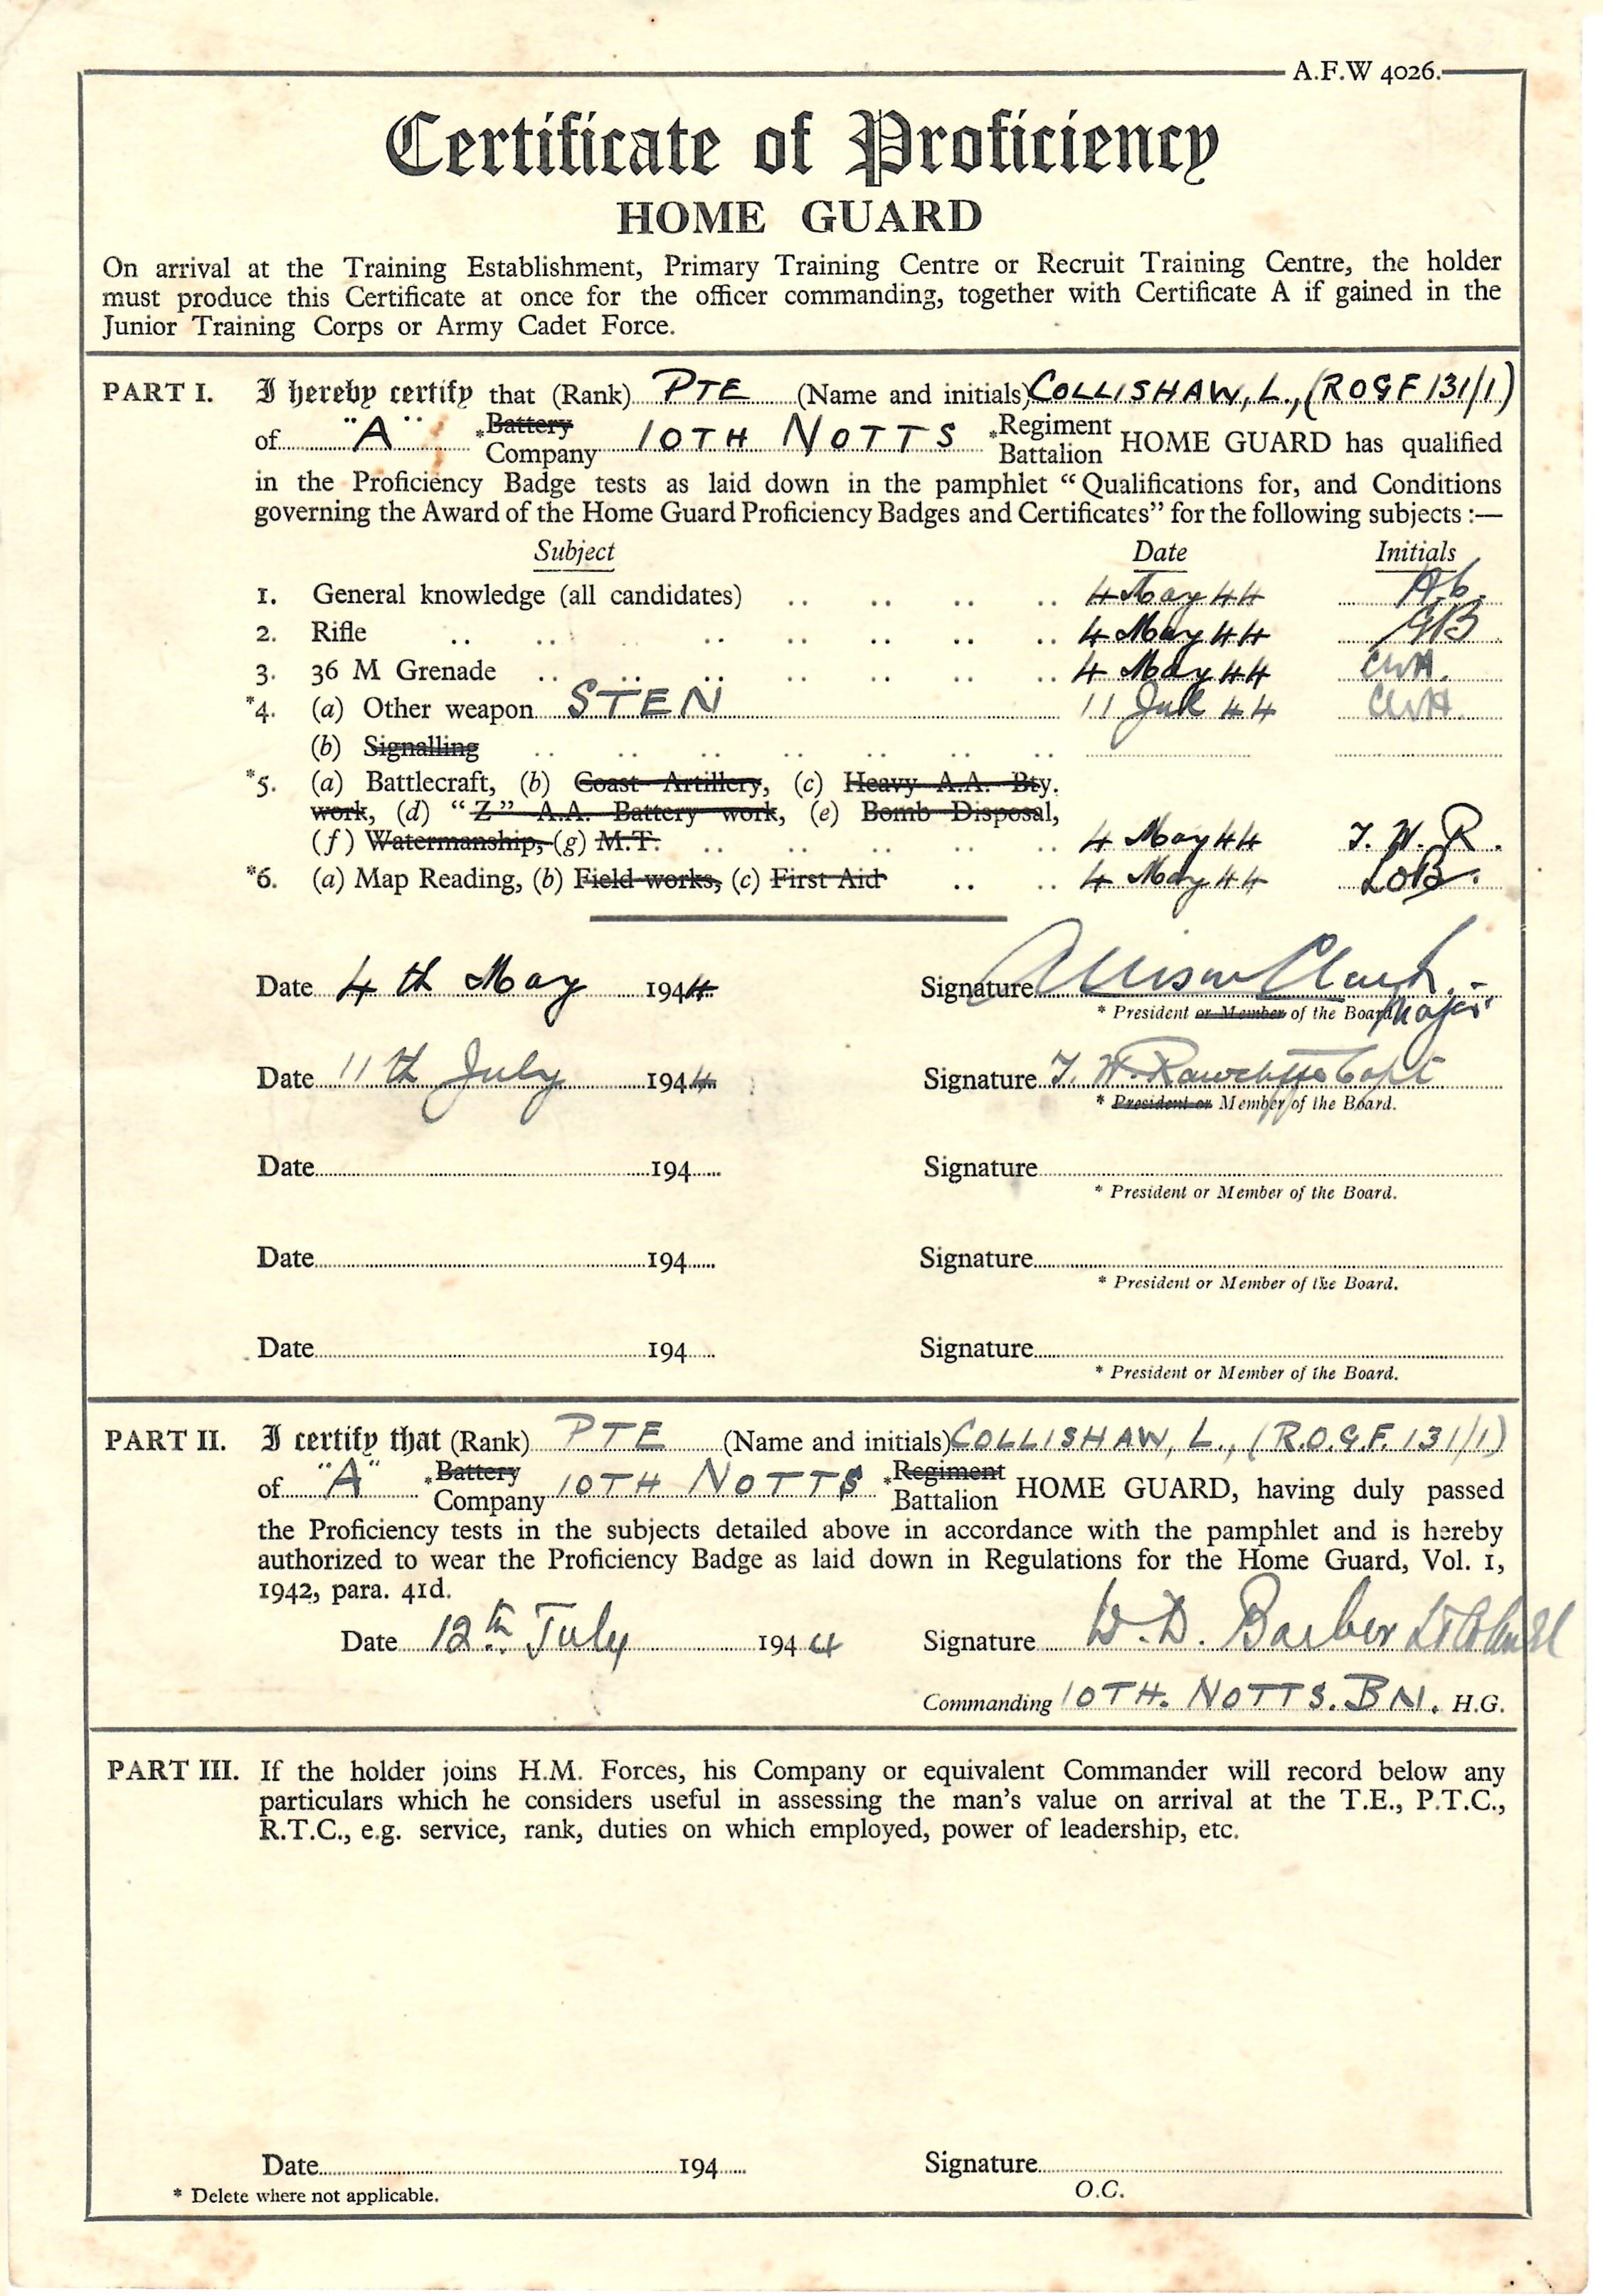 A.F.W 4026.
Certificate of Proficiency
HOME GUARD
On arrival at the Training Establishment, Primary Training Centre or Recruit Training Centre, the holder
must produce this Certificate at once for the officer commanding, together with Certificate A if gained in the
Junior Training Corps or Army Cadet Force.
PART I. I hereby certify that (Rank) PTE (Name and initials) COLLISHAW, L., (ROGF 131/1)
of "A" *Battery Company 10TH NOTTS *Regiment Battalion HOME GUARD has qualified
in the Proficiency Badge tests as laid down in the pamphlet "Qualifications for, and Conditions
governing the Award of the Home Guard Proficiency Badges and Certificates" for the following subjects :—
Subject Date Initials
1. General knowledge (all candidates) .. .. .. .. 4 May 44
2. Rifle .. .. .. .. .. .. .. .. 4 May 44 GB
3. 36 M Grenade .. .. .. .. .. .. .. 4 May 44 CWH.
*4. (a) Other weapon STEN 11 Jul 44 CWH
(b) Signalling .. .. .. .. .. .. ..
*5. (a) Battlecraft, (b) Coast Artillery, (c) Heavy A.A. Bty.
work, (d) "Z" A.A. Battery work, (e) Bomb Disposal,
(f) Watermanship, (g) M.T. .. .. .. .. .. 4 May 44 T. W. R.
*6. (a) Map Reading, (b) Field works, (c) First Aid .. .. 4 May 44 LOB.
Date 4th May 1944 Signature Allison Clark. Major
* President or Member of the Board.
Date 11th July 1944 Signature T. W. Rawcliffe Capt
* President or Member of the Board.
Date 194 Signature
* President or Member of the Board.
Date 194 Signature
* President or Member of the Board.
Date 194 Signature
* President or Member of the Board.
PART II. I certify that (Rank) PTE (Name and initials) COLLISHAW, L., (R.O.G.F. 131/1)
of "A" *Battery Company 10TH NOTTS *Regiment Battalion HOME GUARD, having duly passed
the Proficiency tests in the subjects detailed above in accordance with the pamphlet and is hereby
authorized to wear the Proficiency Badge as laid down in Regulations for the Home Guard, Vol. 1,
1942, para. 41d.
Date 12th July 1944 Signature W. D. Barber Lt Colonel
Commanding 10TH. NOTTS. BN. H.G.
PART III. If the holder joins H.M. Forces, his Company or equivalent Commander will record below any
particulars which he considers useful in assessing the man's value on arrival at the T.E., P.T.C.,
R.T.C., e.g. service, rank, duties on which employed, power of leadership, etc.
Date 194 Signature
* Delete where not applicable. O.C.